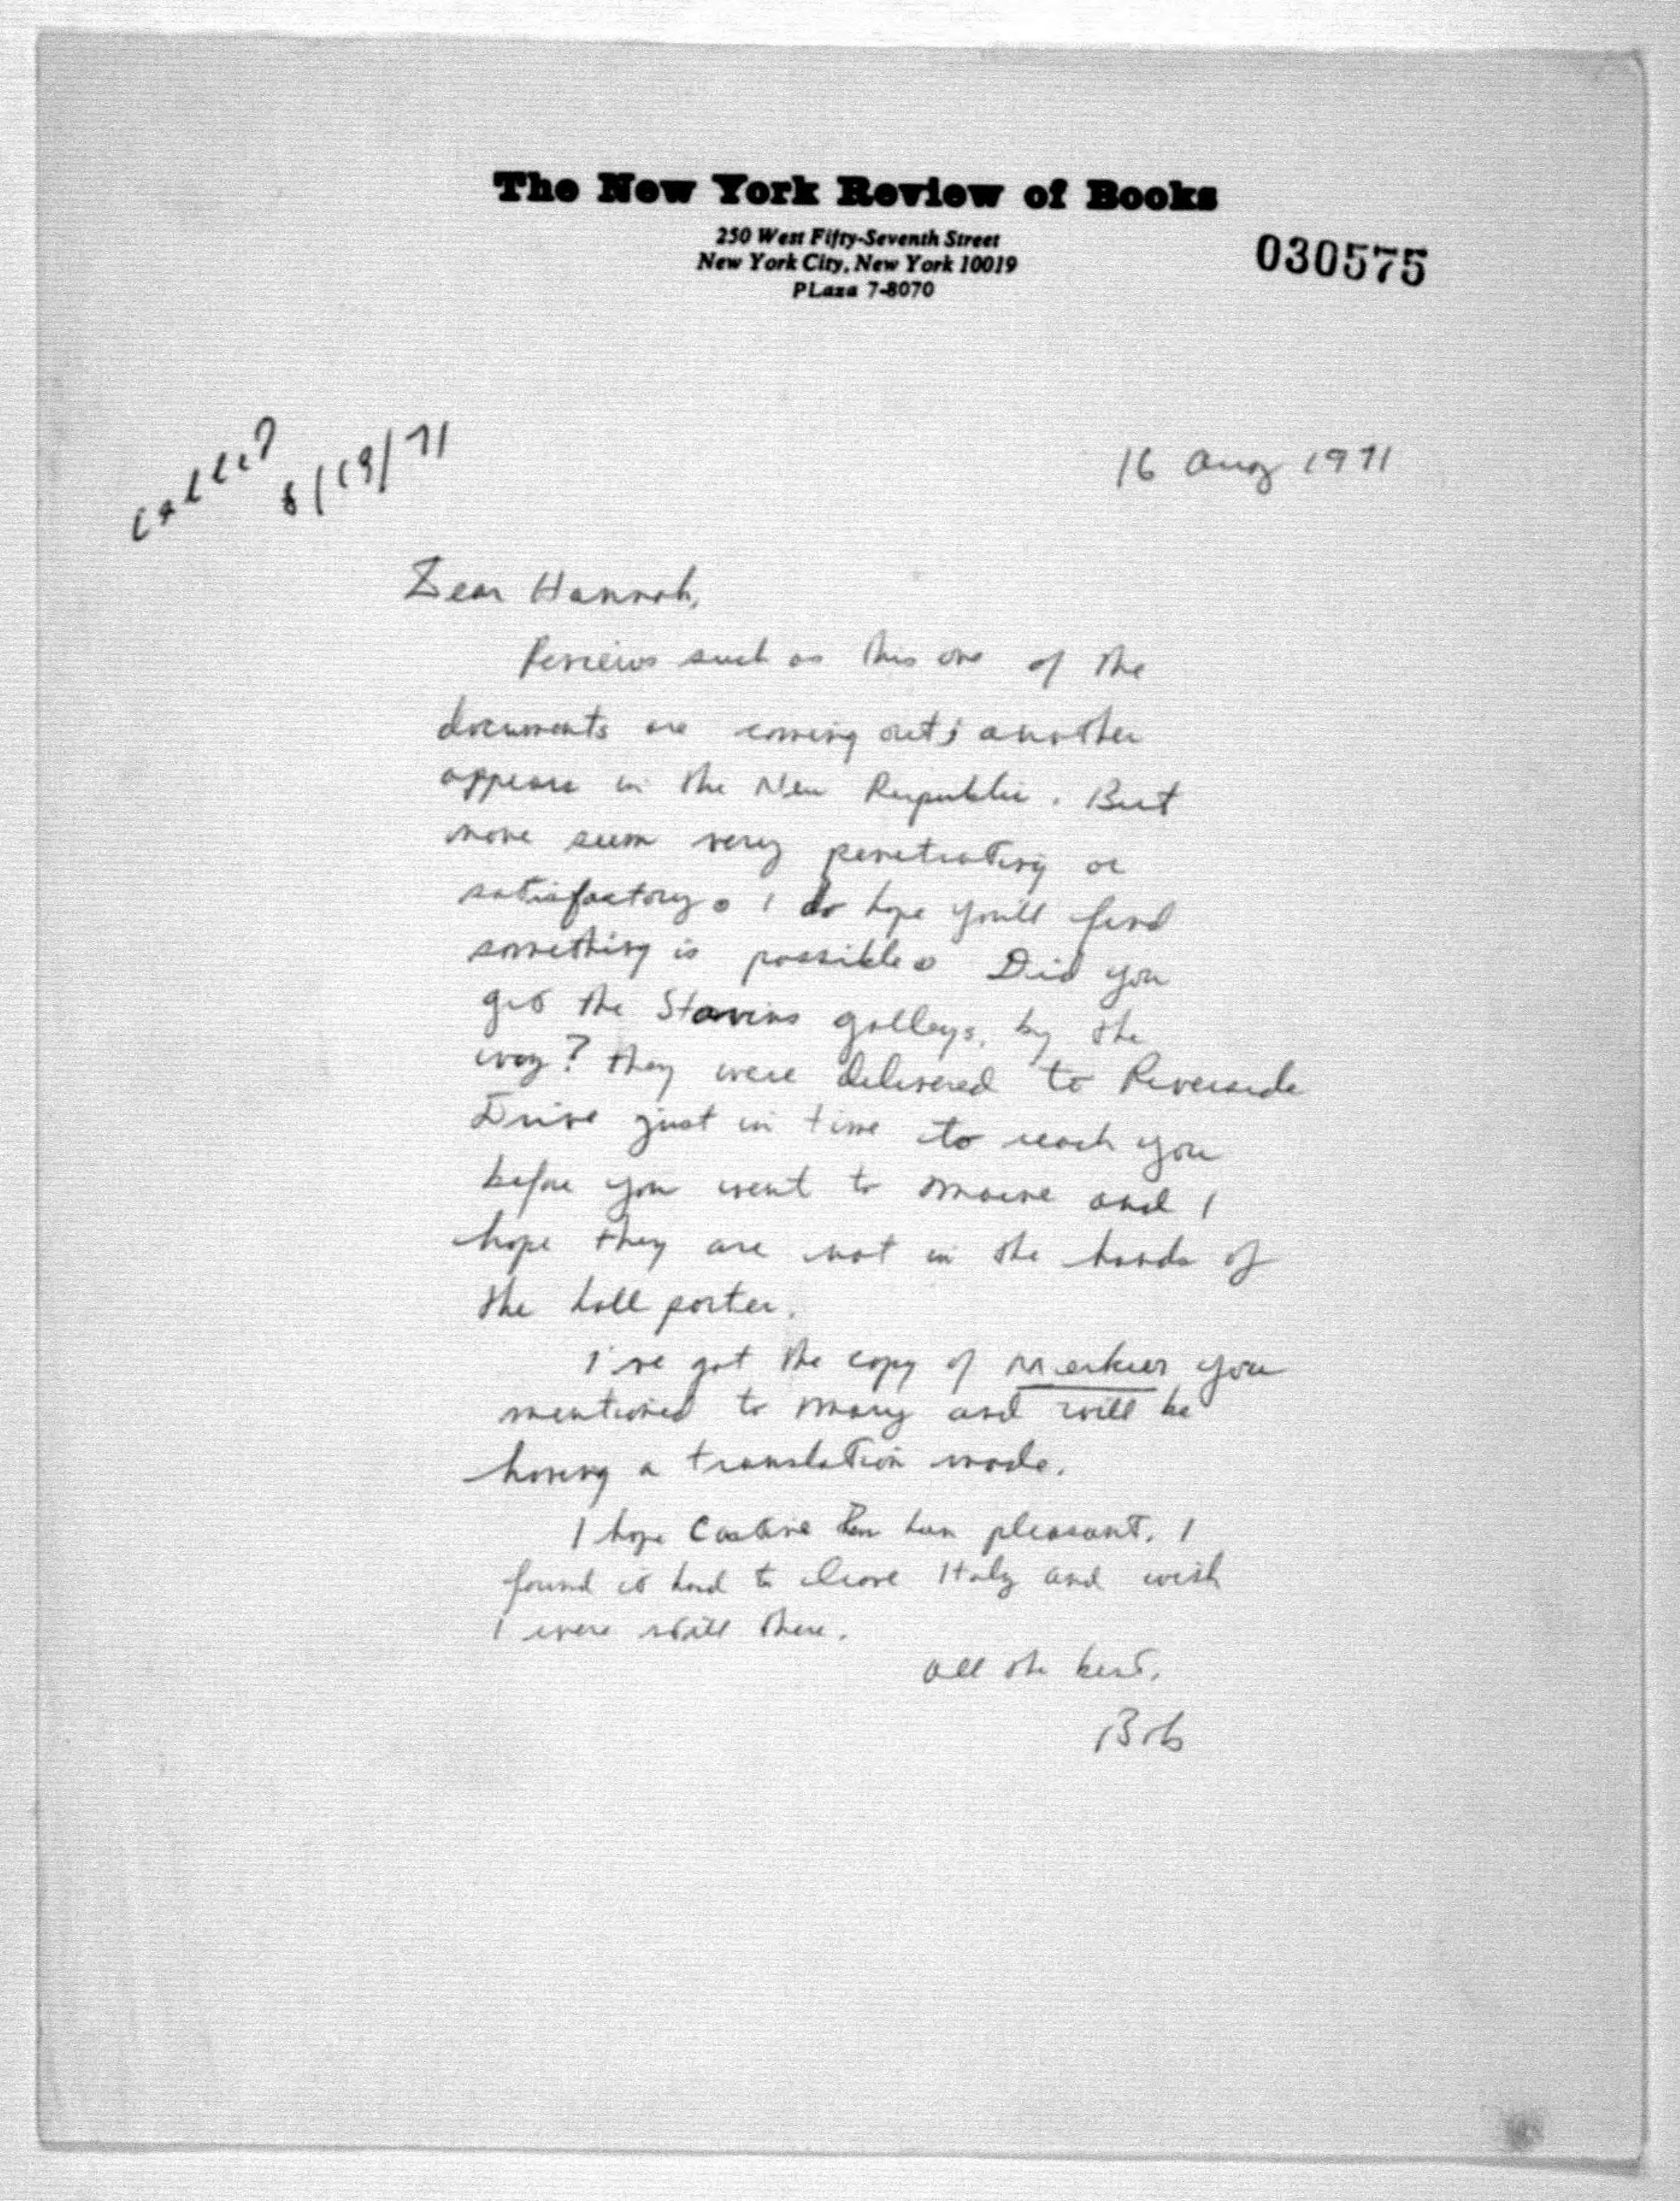 The New York Review of Books
250 West Fifty-Seventh Street
New York City, New York 10019
PLaza 7-8070
030575
called
8/19/71
16 Aug 1971
Dear Hannah,
Reviews such as this one of the
documents are coming out; another
appears in the New Republic. But
none seem very penetrating or
satisfactory. I do hope you'll find
something is possible. Did you
get the Stavins galleys, by the
way? They were delivered to Riverside
Drive just in time to reach you
before you went to Maine and I
hope they are not in the hands of
the hall porter.
I've got the copy of Merkur you
mentioned to Mary and will be
having a translation made.
I hope Castine has been pleasant. I
found it hard to leave Italy and wish
I were still there.
All the best,
Bob